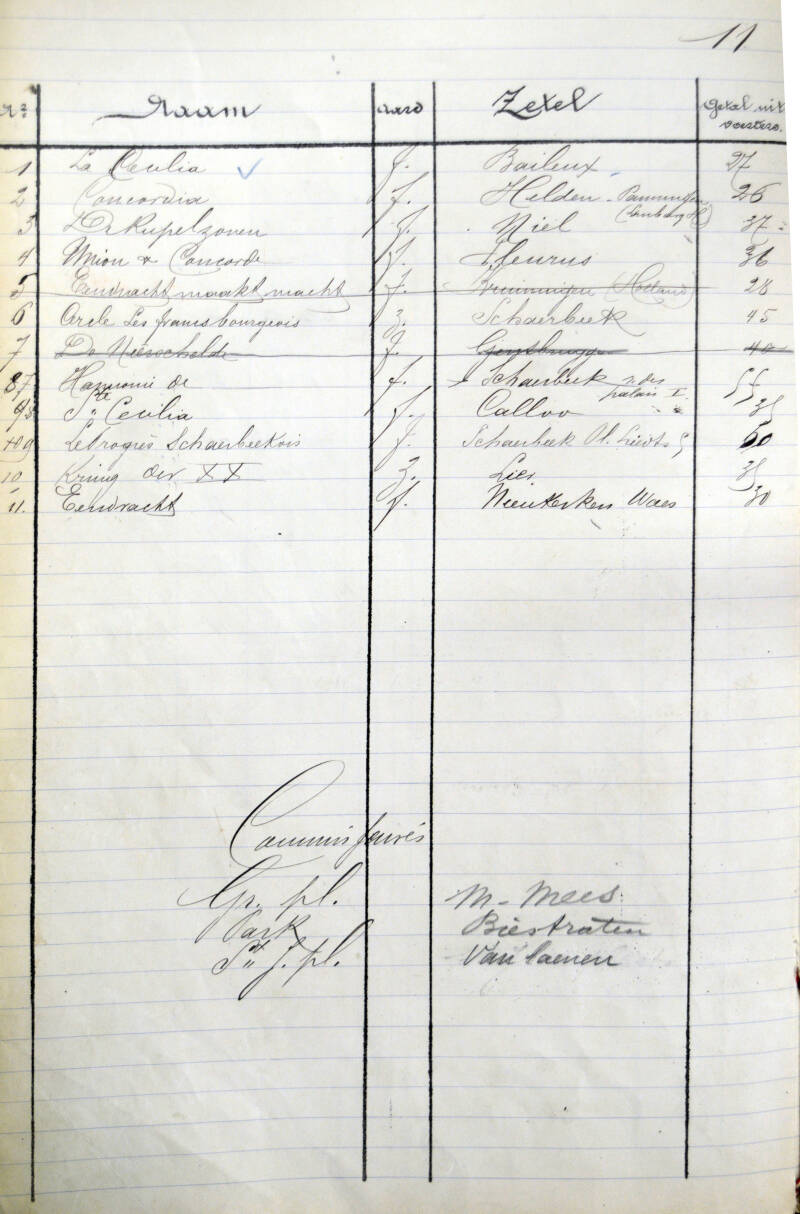 11
Nr: Naam aard Zetel Getal uit voerders.
1 La Cecilia f. Baileux 27
2 Concordia f. Helden - Panningen 26
(Limburg H)
3 De Rupelzonen f. Niel 37
4 Union & Concorde f. Fleurus 36
5 Eendracht maakt macht f. (Holland) 28
6 Cercle Les francs bourgeois z. Schaerbeek 45
7 De Neerschelde f. Gentbrugge 40
8 7 Harmonie de f. Schaerbeek r. des 55
palais
9 8 Ste Cecilia f. Calloo 35
10 9 Le Progrès Schaerbeekois f. Schaerbeek Pl. Liedts 5 60
10 Kring der XX z. Lier 35
11. Eendracht f. Nieukerken Waes 30
Commissaires
Gr. pl. M. Mees
Park Biestraten
St J. pl. Van Caenen